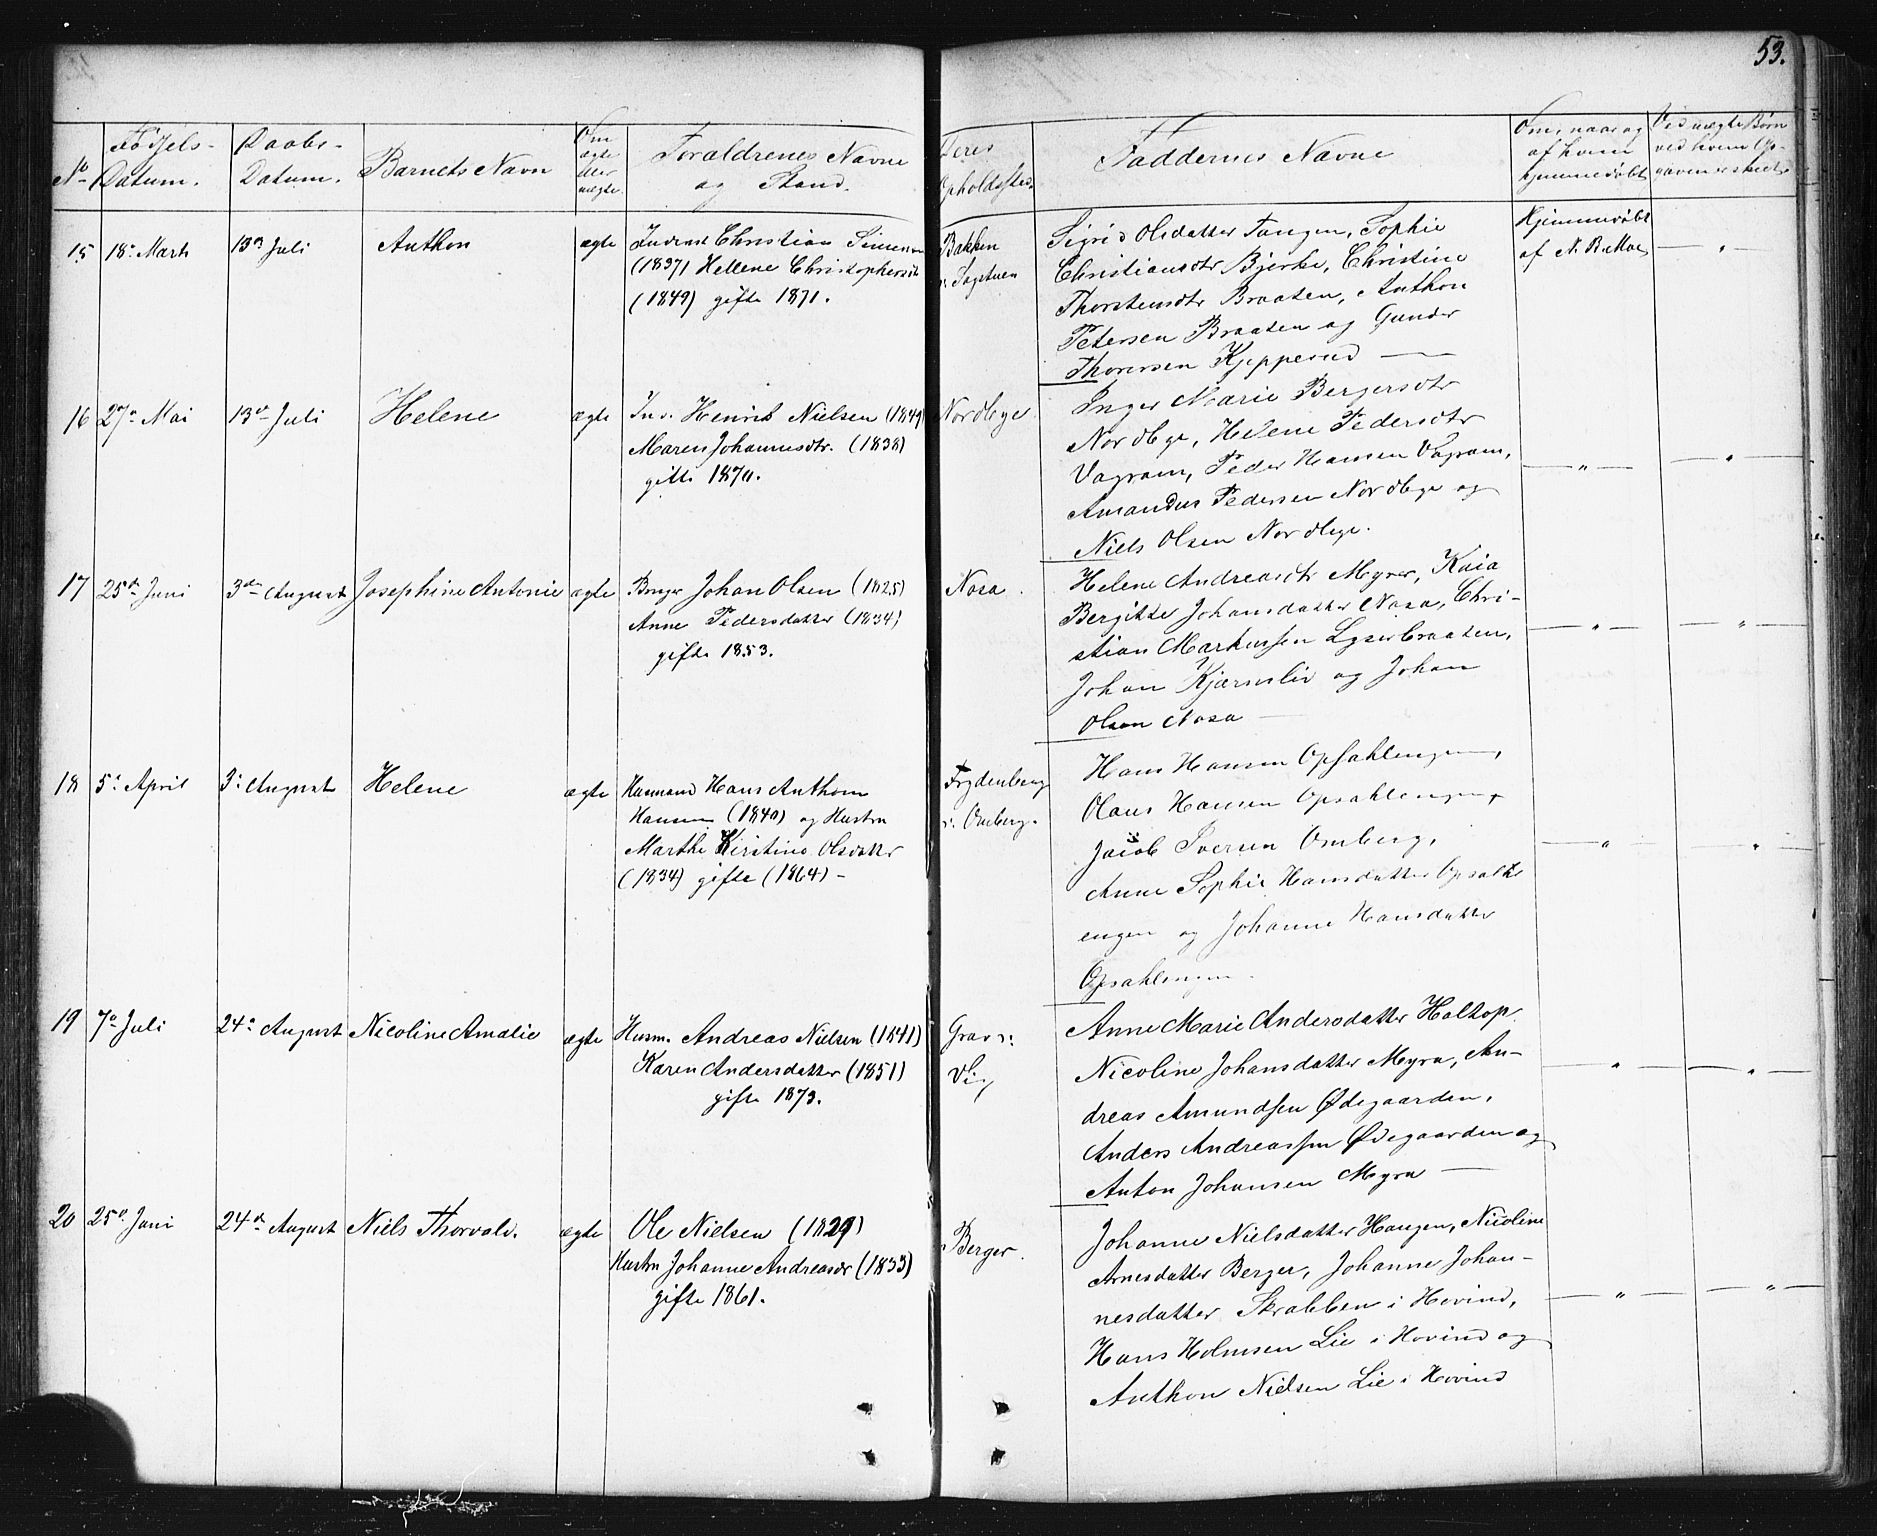 53.
No
Fødsels-
Datum.
Daabs-
Datum.
Barnets Navn
Om
ægte
eller
uægte.
Forældrenes Navne
og Stand.
Deres
Opholdssted
Faddernes Navne
Om, naar og
af hvem
hjemmedøbt
Ved uægte Børn
ved hvem Op-
gaven er skeet.
15 18. Marts 13de Juli Anthon ægte
Inderst Christian Simensen
(1837) Hellene Christophersdt
(1849) gifte 1871.
Bakken
Sagstuen
Sigrid Olsdatter Tangen, Sophie
Christiansdtr Bjerke, Christine
Thorstensdtr Braaten, Anthon
Petersen Braaten og Gunder
Thoresen Kjepperud
Hjemmedøbt
af N. B. Moe
"
16 27de Mai 13de Juli Helene ægte
Ind. Henrik Nielsen (1849)
Maren Johannesdtr. (1838)
gifte 1870.
Nordbye
Inger Marie Bergersdtr
Nordbye, Helene Pedersdtr
Vagram, Peder Hansen Vagram,
Amandus Pedersen Nordbye og
Niels Olsen Nordbye.
" "
17 25de Juni 3die August Josephine Antonie ægte
Bruger Johan Olsen (1825)
Anne Pedersdatter (1834)
gifte 1853.
Nosa
Helene Andreasdtr Myrer, Kaia
Bergitte Johansdatter Nosa, Chri-
stian Markussen Lyserbraaten,
Johan Kjærnslie og Johan
Olsen Nosa
" "
18 5. April 3. August Helene ægte
Husmand Hans Anthon
Hansen (1840) og Hustru
Marthe Kirstine Olsdatter
(1834) gifte (1864) -
Frydenberg
Omberg.
Hans Hansen Opsahlengen,
Olaus Hansen Opsahlengen,
Jacob Iversen Omberg,
Anne Sophie Hansdatter Opsahl
engen og Johanne Hansdatter
Opsahlengen.
" "
19 7de Juli 24de August Nicoline Amalie ægte
Husm. Andreas Nielsen (1841)
Karen Andersdatter (1851)
gifte 1873.
Grav
Vig
Anne Marie Andersdatter Holtop
Nicoline Johansdatter Myra, An-
dreas Amundsen Ødegaarden,
Anders Andreassen Ødegaarden og
Anton Johansen Myra
" "
20 25de Juni 24de August Niels Thorvald. ægte
Ole Nielsen (1829)
Hustru Johanne Andreasdr (1833)
gifte 1861.
Berger.
Johanne Nielsdatter Haugen, Nicoline
Arnesdatter Berger, Johanne Johan-
nesdatter Skrabben i Hovind,
Hans Holmsen Lie i Hovind og
Anthon Nielsen Lie i Hovind
" "